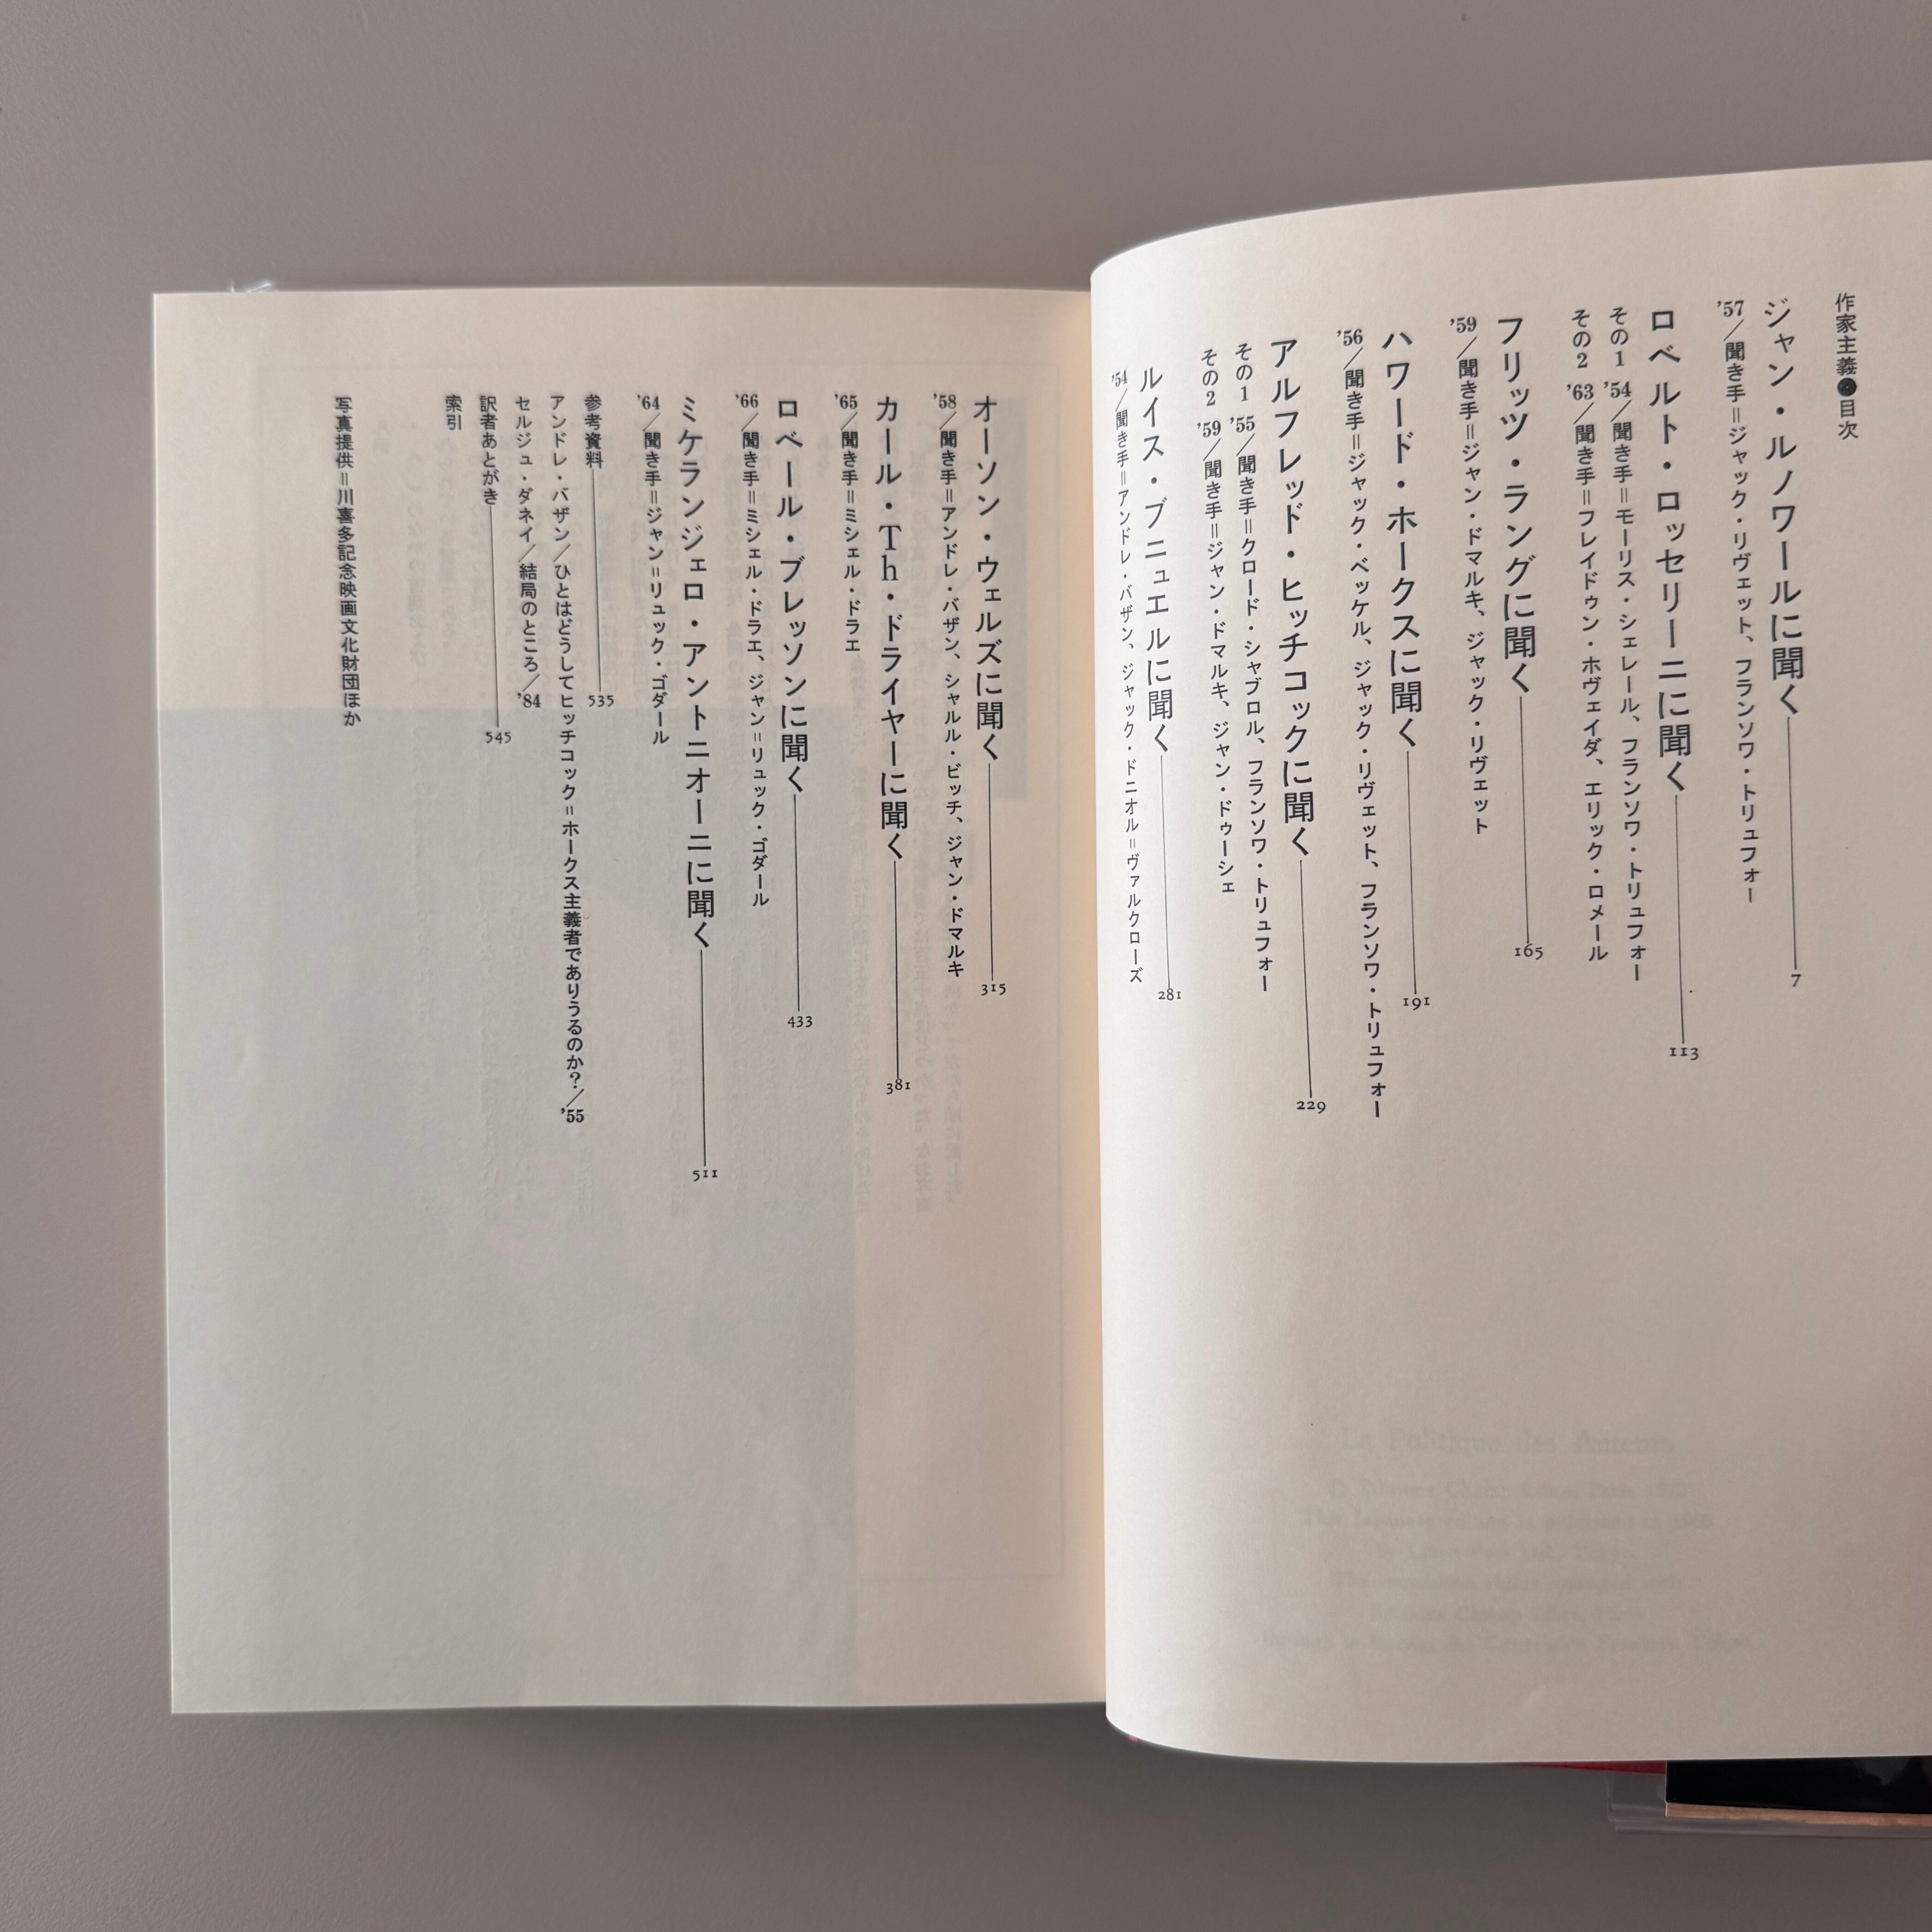 作家主義●目次
ジャン・ルノワールに聞く 7
'57／聞き手＝ジャック・リヴェット、フランソワ・トリュフォー
ロベルト・ロッセリーニに聞く 113
その1 '54／聞き手＝モーリス・シェレール、フランソワ・トリュフォー
その2 '63／聞き手＝フレイドゥン・ホヴェイダ、エリック・ロメール
フリッツ・ラングに聞く 165
'59／聞き手＝ジャン・ドマルキ、ジャック・リヴェット
ハワード・ホークスに聞く 191
'56／聞き手＝ジャック・ベッケル、ジャック・リヴェット、フランソワ・トリュフォー
アルフレッド・ヒッチコックに聞く 229
その1 '55／聞き手＝クロード・シャブロル、フランソワ・トリュフォー
その2 '59／聞き手＝ジャン・ドマルキ、ジャン・ドゥーシェ
ルイス・ブニュエルに聞く 281
'54／聞き手＝アンドレ・バザン、ジャック・ドニオル＝ヴァルクローズ
オーソン・ウェルズに聞く 315
'58／聞き手＝アンドレ・バザン、シャルル・ビッチ、ジャン・ドマルキ
カール・Th・ドライヤーに聞く 381
'65／聞き手＝ミシェル・ドラエ
ロベール・ブレッソンに聞く 433
'66／聞き手＝ミシェル・ドラエ、ジャン＝リュック・ゴダール
ミケランジェロ・アントニオーニに聞く 511
'64／聞き手＝ジャン＝リュック・ゴダール
参考資料 535
アンドレ・バザン／ひとはどうしてヒッチコック＝ホークス主義者でありうるのか？／'55
セルジュ・ダネイ／結局のところ／'84
訳者あとがき 545
索引
写真提供＝川喜多記念映画文化財団ほか
La Politique des Auteurs